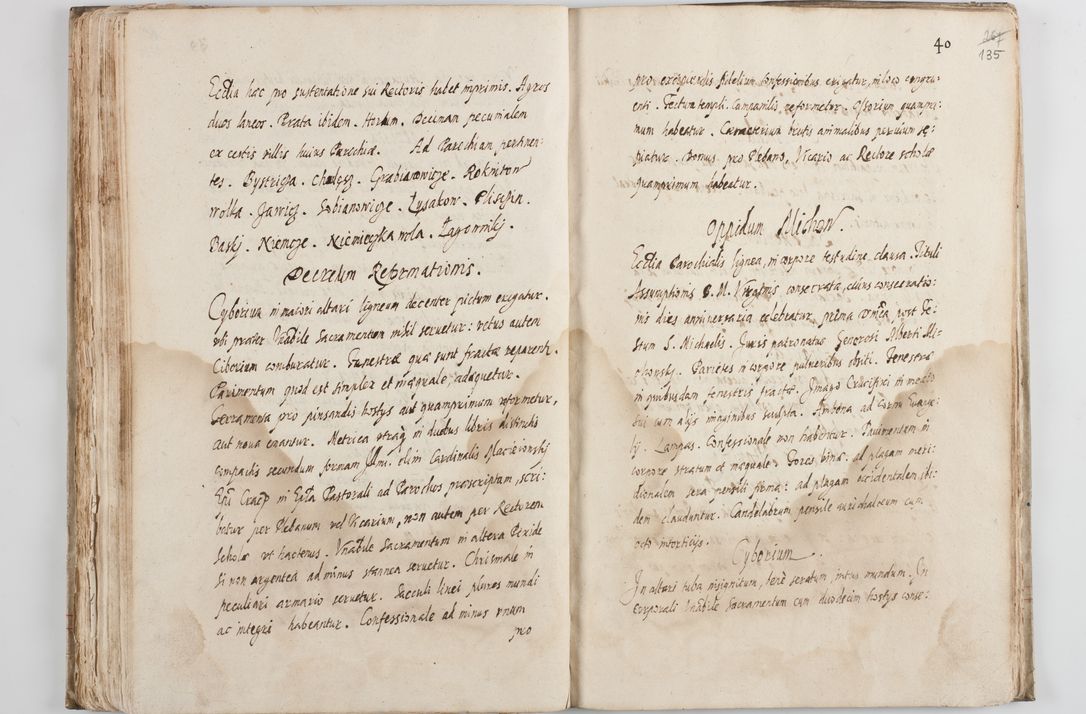 Ecclia hac pro sustentatione sui Rectoris habet inprimis. Agros
duos laneos. Prata ibidem. Hortum. Decimam pecunialem
ex certis villis huius Parochiæ. Ad Parochiam pertinen-
tes. Bystrzyca. Grabianowicze. Rokniton
Wolka. Jawicz. Sobianowicze. Łysakow. Plisczin.
Baski. Niemcze. Niemieczka wola. Łagiewniki.
Decretum Reformationis.
Cyborium in maiori altari ligneum decenter pictum erigatur.
ubi præter Vnabile Sacramentum nihil seruetur: vetus autem
Ciborium comburatur. Funestræ quæ sunt fractæ reparentr.
Pavimentum quod est simplex et inæquale, adæquetur.
Ferramenta pro pinsandis hostys aut quamprimum reformetur,
aut noua emantur. Metrica utraq in duobus libris distinctis
compactis secundum formam Illmi. olim Cardinalis Macieiowsky
Epi Crac in Epla Pastorali ad Parochos præscriptam, scri-
batur per Plebanum vel Vicarium, non autem per Rectorem
Scholæ ut hactenus. Vnabile Sacramentum in altera Pixide
si non argentea ad minus stannea seruetur. Chrismale in
peculiari armario seruetur. Sacculi linei plures mundi
ac integri habeantur. Confessionale ad minus vnum
pro
40
267
135
pro excipiendis fidelium confessionibus erigatur, in loco congru-
enti. Tectum templi. Campanilis reformetur. Ossorium quampri-
mum habeatur. Cœmeterium brutis animalibus peruium se-
piatur. Domus pro Plebano, Vicario ac Rectore scholæ
quamprimum habeatur.
Oppidum Michow.
Ecclia Parochialis lignea, in corpore testudine clausa. Tituli
Assumptionis B. M. Virginis consecrata, cuius consecratio-
nis dies anniuersaria celebratur prima Dnica post fe-
stum S. Michaelis. Juris patronatus Generosi Alberti Mi-
chowsky. Parietes in corpore pulueribus obsiti. Fenestræ
in quibusdam fenestris fractæ. Imago Crucifixi in medio
sui cum alys imaginibus sculpta. Ambona ad cornu Euange-
ly. Lampas. Confessionale non habetur. Pauimentum in
corpore stratum et inæquale. Fores binæ. ad plagam meri-
dionalem sera pensili firmæ: ad plagam occidentalem ibi-
dem clauduntur. Candelabrum pensile aurichalceum cum
octo intorticijs.
Cyborium.
In altari tuba insignitum, bene seratum intus mundum. In
Corporali Vnabile Sacramentum cum duodecim hostys conse-